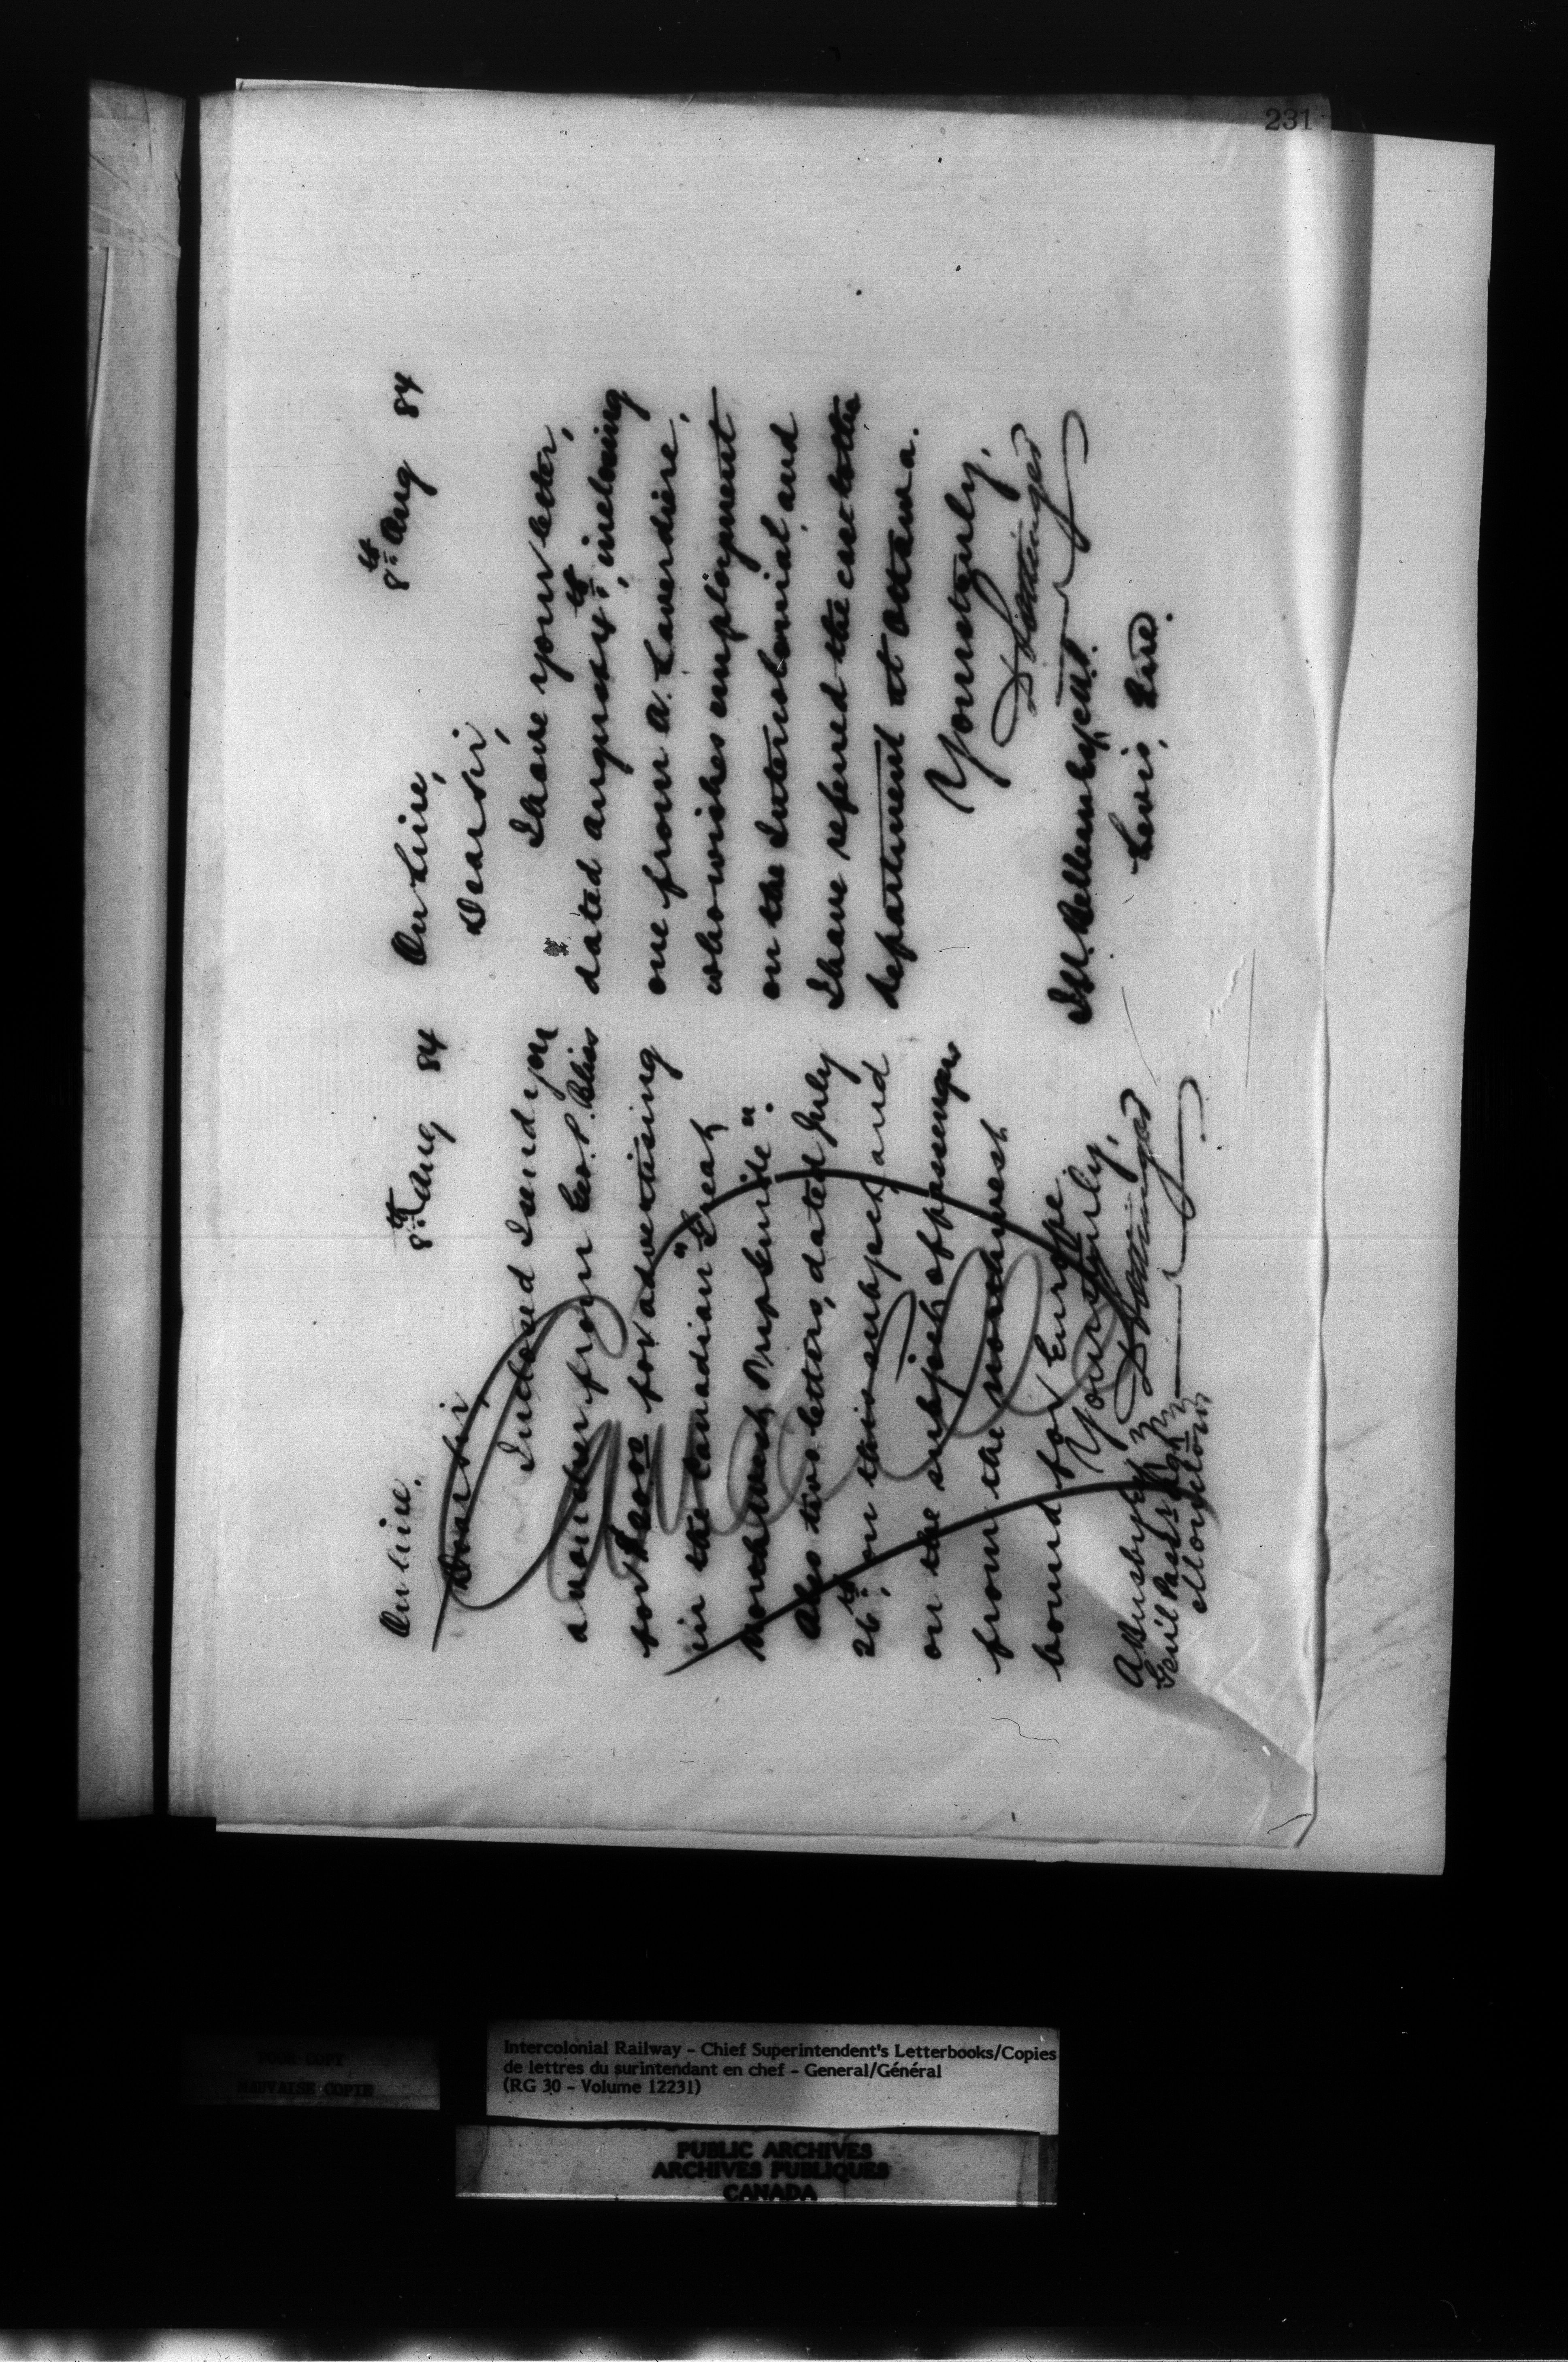 231
On Line.
8th Aug 84
Dear Sir,
Inclosed I send you
a voucher from Geo. P. Bliss
for for advertising
in the Canadian "Great
North West Prep Guide".
Also two letters, dated July
26th, on this subject and
on the subject of passengers
from the northwest
bound for Europe
Yours truly,
D Pottinger
A Busby Esq
Gen'l Pass Agt
Moncton
On Line,
8th Aug 84
Dear Sir,
I have your letter,
dated august 4th, inclosing
one from A. Laverdière,
who wishes employment
on the Intercolonial, and
I have referred the case to the
department at Ottawa.
Yours truly,
D Pottinger
Belleau Esq. M.P.
Levis, Que.
POOR COPY
MAUVAISE COPIE
Intercolonial Railway - Chief Superintendent's Letterbooks/Copies
de lettres du surintendant en chef - General/Général
(RG 30 - Volume 12231)
PUBLIC ARCHIVES
ARCHIVES PUBLIQUES
CANADA